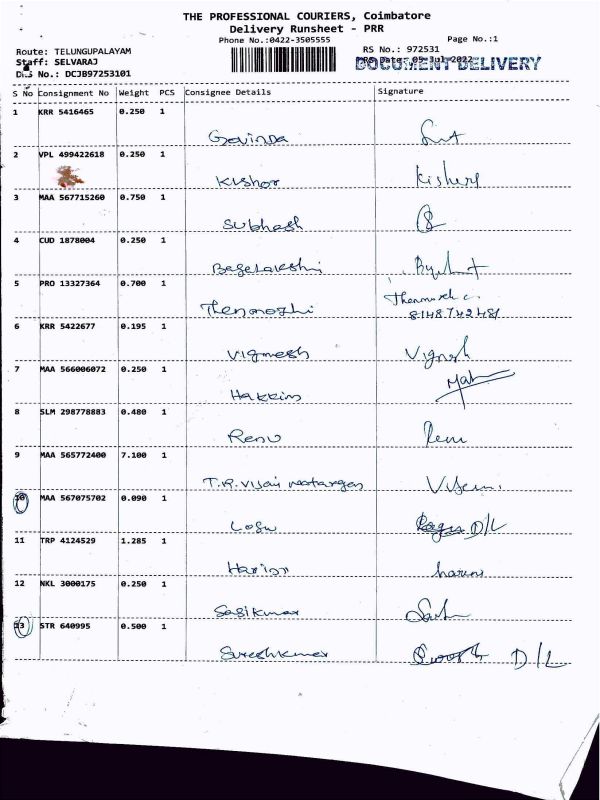 THE PROFESSIONAL COURIERS, Coimbatore
Delivery Runsheet - PRR
Phone No.:0422-3505555
Page No.:1
Route: TELUNGUPALAYAM
RS No.: 972531
Staff: SELVARAJ
Date: 05-Jul-2022
DOCUMENT DELIVERY
No.: DCJB97253101
S No Consignment No Weight PCS Consignee Details Signature
1 KRR 5416465 0.250 1
Govinda
2 VPL 499422618 0.250 1
Kishor Kishory
3 MAA 567715260 0.750 1
Subhash
4 CUD 1878004 0.250 1
5 PRO 13327364 0.700 1
Thenmozhi
8148742481
6 KRR 5422677 0.195 1
Vignesh Vignesh
7 MAA 566006072 0.250 1
Hakkim
8 SLM 298778883 0.480 1
Renu Renu
9 MAA 565772400 7.100 1
T.R.Vijai Natargen
10 MAA 567075702 0.090 1
Logu D/L
11 TRP 4124529 1.285 1
12 NKL 3000175 0.250 1
Sasikumar
13 STR 640995 0.500 1
Sureshkumar D/L